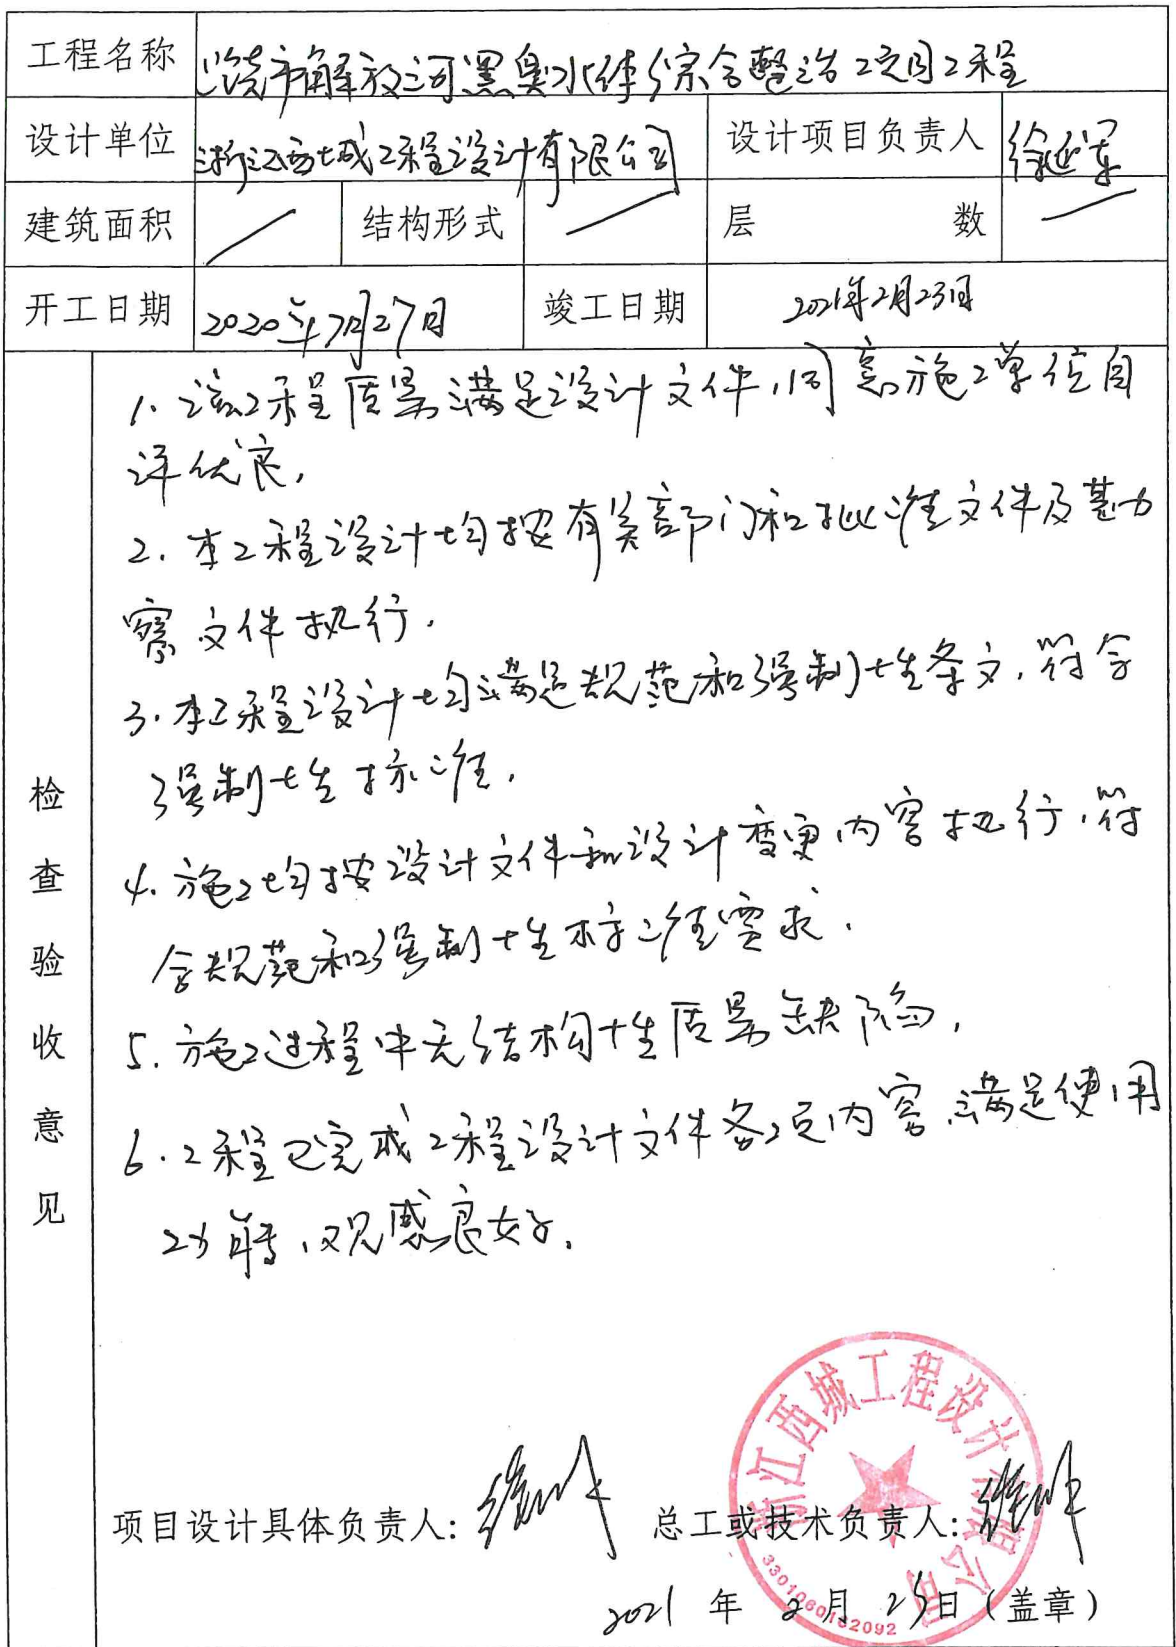 工程名称 上饶市解放河黑臭水体综合整治项目工程
设计单位 浙江西城工程设计有限公司 设计项目负责人 徐延军
建筑面积 / 结构形式 / 层数 /
开工日期 2020年7月27日 竣工日期 2021年2月23日
检查验收意见
1. 该工程质量满足设计文件,同意施工单位自
评优良.
2. 本工程设计均按有关部门和批准文件及勘
察文件执行.
3. 本工程设计均满足规范和强制性条文,符合
强制性标准.
4. 施工均按设计文件和设计变更内容执行,符
合规范和强制性标准要求.
5. 施工过程中无结构性质量缺陷.
6. 工程已完成工程设计文件各项内容,满足使用
功能,观感良好.
浙江西城工程设计有限公司
项目设计具体负责人: 总工或技术负责人:
3301060162092
2021 年 2 月 25日(盖章)